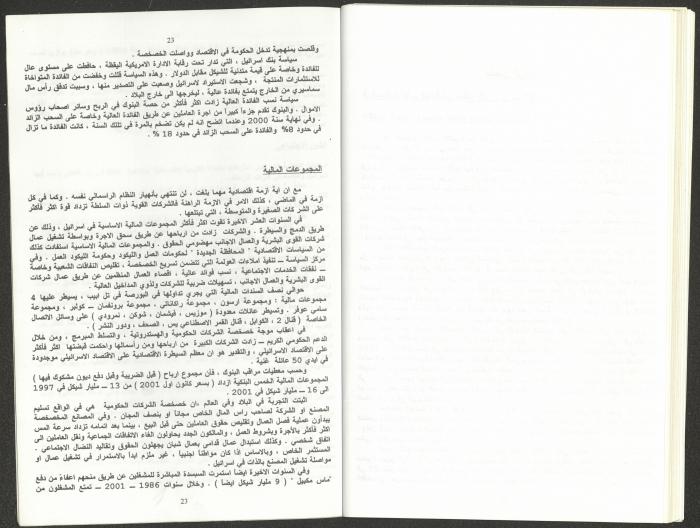 23
وقلصت بمنهجية تدخل الحكومة في الاقتصاد وواصلت الخصخصة .
سياسة بنك اسرائيل ، التي تدار تحت رقابة الادارة الامريكية اليقظة ، حافظت على مستوى عال
للفائدة وخاصة على قيمة متدنية للشيكل مقابل الدولار . وهذه السياسة قللت وخفضت من الفائدة المتوخاة
للاستثمارات المنتجة ، وشجعت الاستيراد لاسرائيل وصعبت على التصدير منها ، وسببت تدفق رأس مال
سماسيري من الخارج يتمتع بفائدة عالية ، ليخرجها الى خارج البلاد .
سياسة نسب الفائدة العالية زادت اكثر فأكثر من حصة البنوك في الربح وسائر اصحاب رؤوس
الاموال . والبنوك تقدم جزءاً كبيراً من اجرة العاملين عن طريق الفائدة العالية وخاصة على السحب الزائد
. وفي نهاية سنة 2000 وعندما اتضح انه لم يكن تضخم بالمرة في تلك السنة ، كانت الفائدة ما تزال
في حدود 8% والفائدة على السحب الزائد في حدود 18 % .
المجموعات المالية
مع ان اية ازمة اقتصادية مهما بلغت ، لن تنتهي بأنهيار النظام الراسمالي نفسه . وكما في كل
ازمة في الماضي ، كذلك الامر في الازمة الراهنة فالشركات القوية ذوات السلطة تزداد قوة اكثر فأكثر
على الشركات الصغيرة والمتوسطة ، التي تبتلعها .
في السنوات العشر الاخيرة تقوت اكثر فأكثر المجموعات المالية الاساسية في اسرائيل ، وذلك عن
طريق الدمج والسيطرة . والشركات زادت من ارباحها عن طريق سحق الاجرة وبواسطة تشغيل عمال
شركات القوى البشرية والعمال الاجانب مهضومي الحقوق . والمجموعات المالية الاساسية استفادت كذلك
من السياسات الاقتصادية " المحافظة الجديدة " لحكومات العمل والليكود وحكومة الليكود العمل . وفي
مركز السياسة ــ تنفيذ املاءات العولمة التي تتضمن تسريع الخصخصة ، تقليص النفاقات الشعبية وخاصة
ــ نفقات الخدمات الاجتماعية ، نسب فوائد عالية ، اقصاء العمال المنظمين عن طريق عمال شركات
القوى البشرية والعمال الاجانب ، تسهيلات ضريبية للشركات ولذوي المداخيل العالية .
حوالي نصف السندات المالية التي يجري تداولها في البورصة في تل ابيب ، يسيطر عليها 4
مجموعات مالية : ومجموعة اريسون ، مجموعة راكاناتي ، مجموعة برونفمان ــ كولبر ، ومجموعة
سامي عوفر . وتسيطر عائلات معدودة ( موزيس ، فيشمان ، شوكن ، نمرودي ) على وسائل الاتصال
الخاصة ( قنال 2 ، الكوابل ، قنال القمر الاصطناعي يس ، الصحف ، ودور النشر ) .
في اعقاب موجة خصخصة الشركات الحكومية والهستدروتية ، والتسلط المبرمج ، ومن خلال
الدعم الحكومي الكريم ــ زادت الشركات الكبيرة من ارباحها ومن رأسمالها واحكمت قبضتها اكثر فأكثر
على الاقتصاد الاسرائيلي ، والتقدير هو ان معظم السيطرة الاقتصادية على الاقتصاد الاسرائيلي موجودة
في ايدي 50 عائلة غنية .
وحسب معطيات مراقب البنوك ، فأن مجموع ارباح ( قبل الضريبة وقبل دفع ديون مشكوك فيها )
المجموعات المالية الخمس البنكية ازداد ( بسعر كانون اول 2001 ) من 13 ــ مليار شيكل في 1997
الى 16 ــ مليار شيكل في 2001 .
اثبتت التجربة في البلاد وفي العالم -ان خصخصة الشركات الحكومية هي في الواقع تسليم
المصنع او الشركة لصاحب راس المال الخاص مجاناً او بنصف المجان . وفي المصانع المخصخصة
يبدأون عملية فصل العمال وتقليص حقوق العاملين حتى قبل البيع ، بينما بعد اتمامه تزداد سرعة المس
اكثر فأكثر بالأجرة وبشروط العمل ، والمالكون الجدد يحاولون الغاء الاتفاقات الجماعية ونقل العاملين الى
اتفاق شخصي . وكذلك استبدال عمال قدامى بعمال شبان يجهلون الحقوق وتقاليد النضال الاجتماعي .
المستثمر الخاص ، وبالاساس اذا كان مواطناً اجنبياً ، غير ملزم ابداً بالاستمرار في تشغيل عمال او
مواصلة تشغيل المصنع بالذات في اسرائيل .
وفي السنوات الاخيرة ايضاً استمرت السبسدة المباشرة للمشغلين عن طريق منحهم اعفاءً من دفع
"ماس مكبيل " ( 9 مليار شيكل ايضاً ) . وخلال سنوات 1986 ــ 2001 ــ تمتع المشغلون من
23